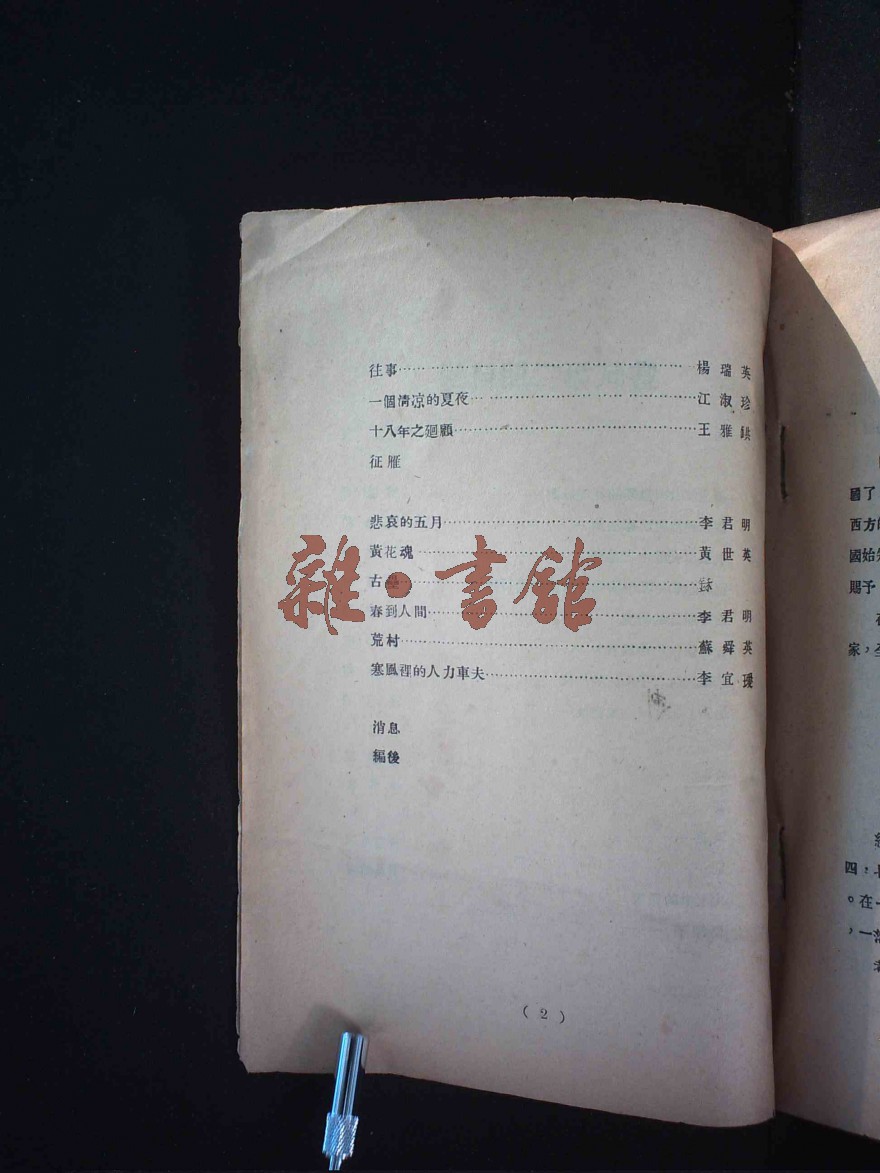 往事 楊瑞英
一個清凉的夏夜 江淑珍
十八年之廻顧 王雅
征雁
悲哀的五月 李君明
黃花魂 黃世英
古
春到人間 李君明
荒村 蘇舜英
寒風裡的人力車夫 李宜
消息
編後
( 2 )
雜·書館
國了
西方
國始
賜予
家,
四:
。在
,一